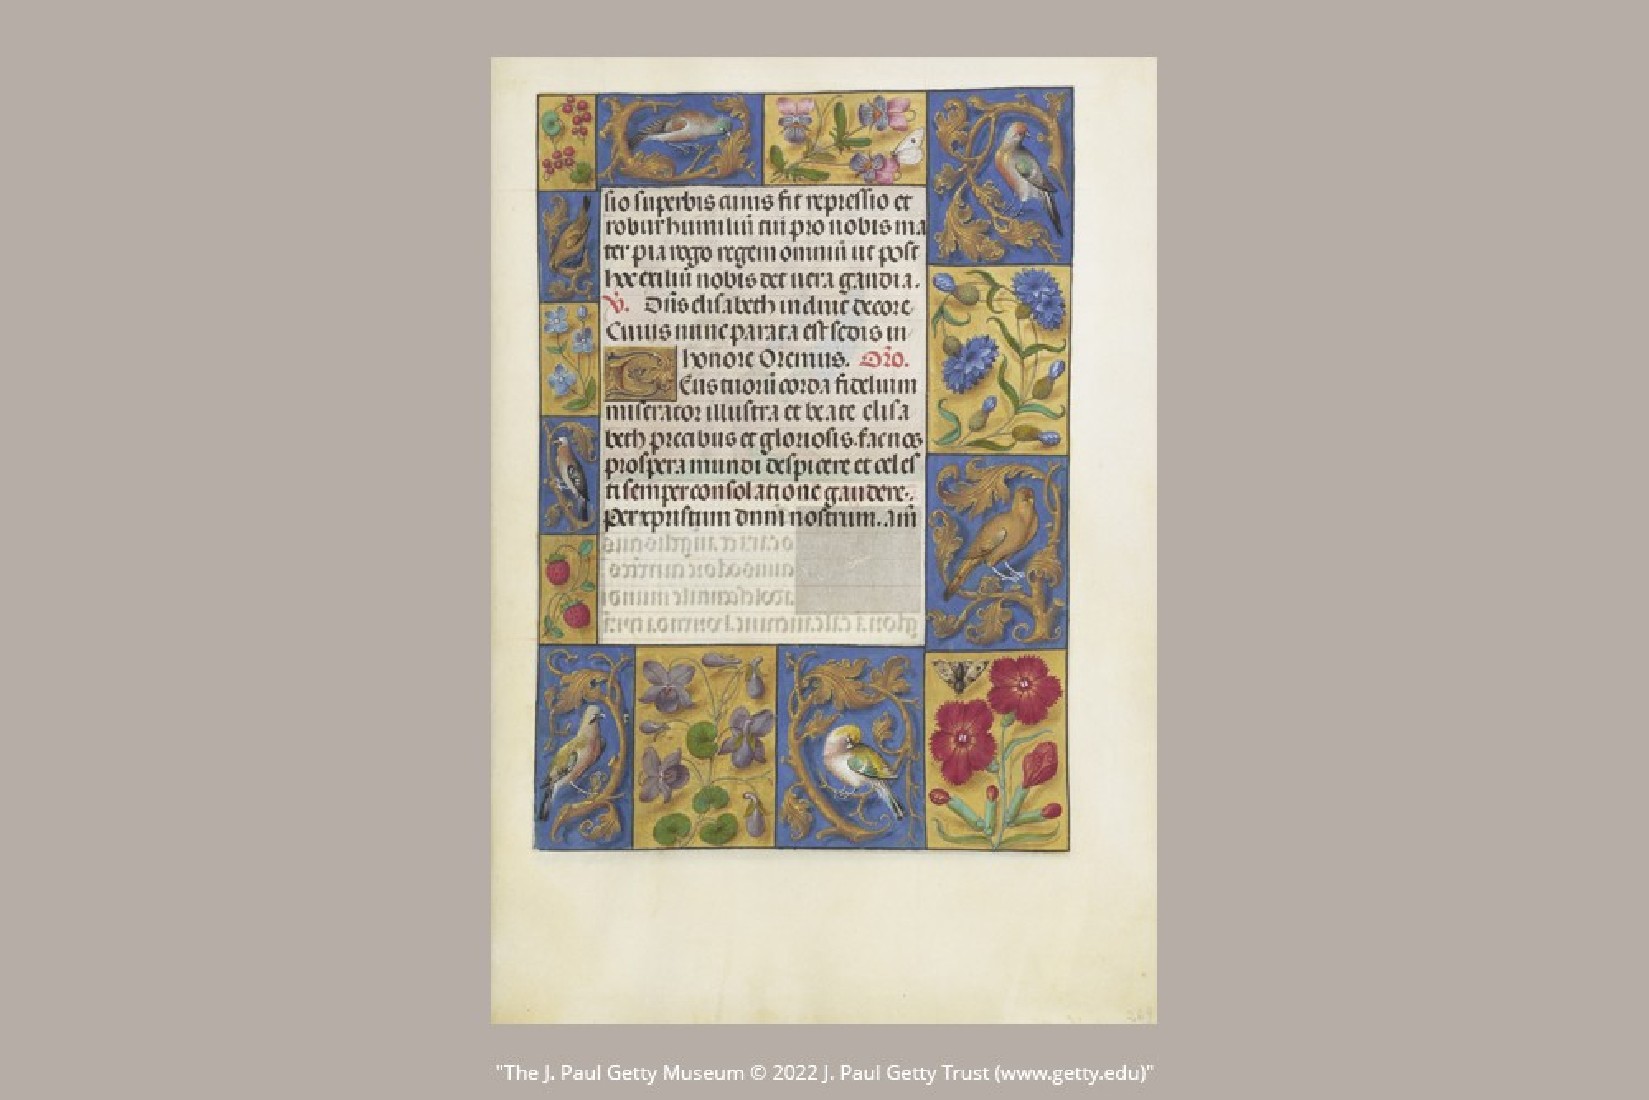 sio superbis cuius fit repressio et
robur humiliū tui pro nobis ma
ter pia rogo regem omniū ut post
hoc exiliū nobis det uera gaudia.
V. Diis elisabeth induit decore
Cuius nunc parata est sedis in
honore Oremus. Oro.
Eus tuorū corda fidelium
miserator illustra et beate elisa
beth precibus et gloriosis. fac nos
prospera mundi despicere et celes
ti semper consolatione gaudere.
Per xpristum dnm nostrum. am
269
"The J. Paul Getty Museum © 2022 J. Paul Getty Trust (www.getty.edu)"